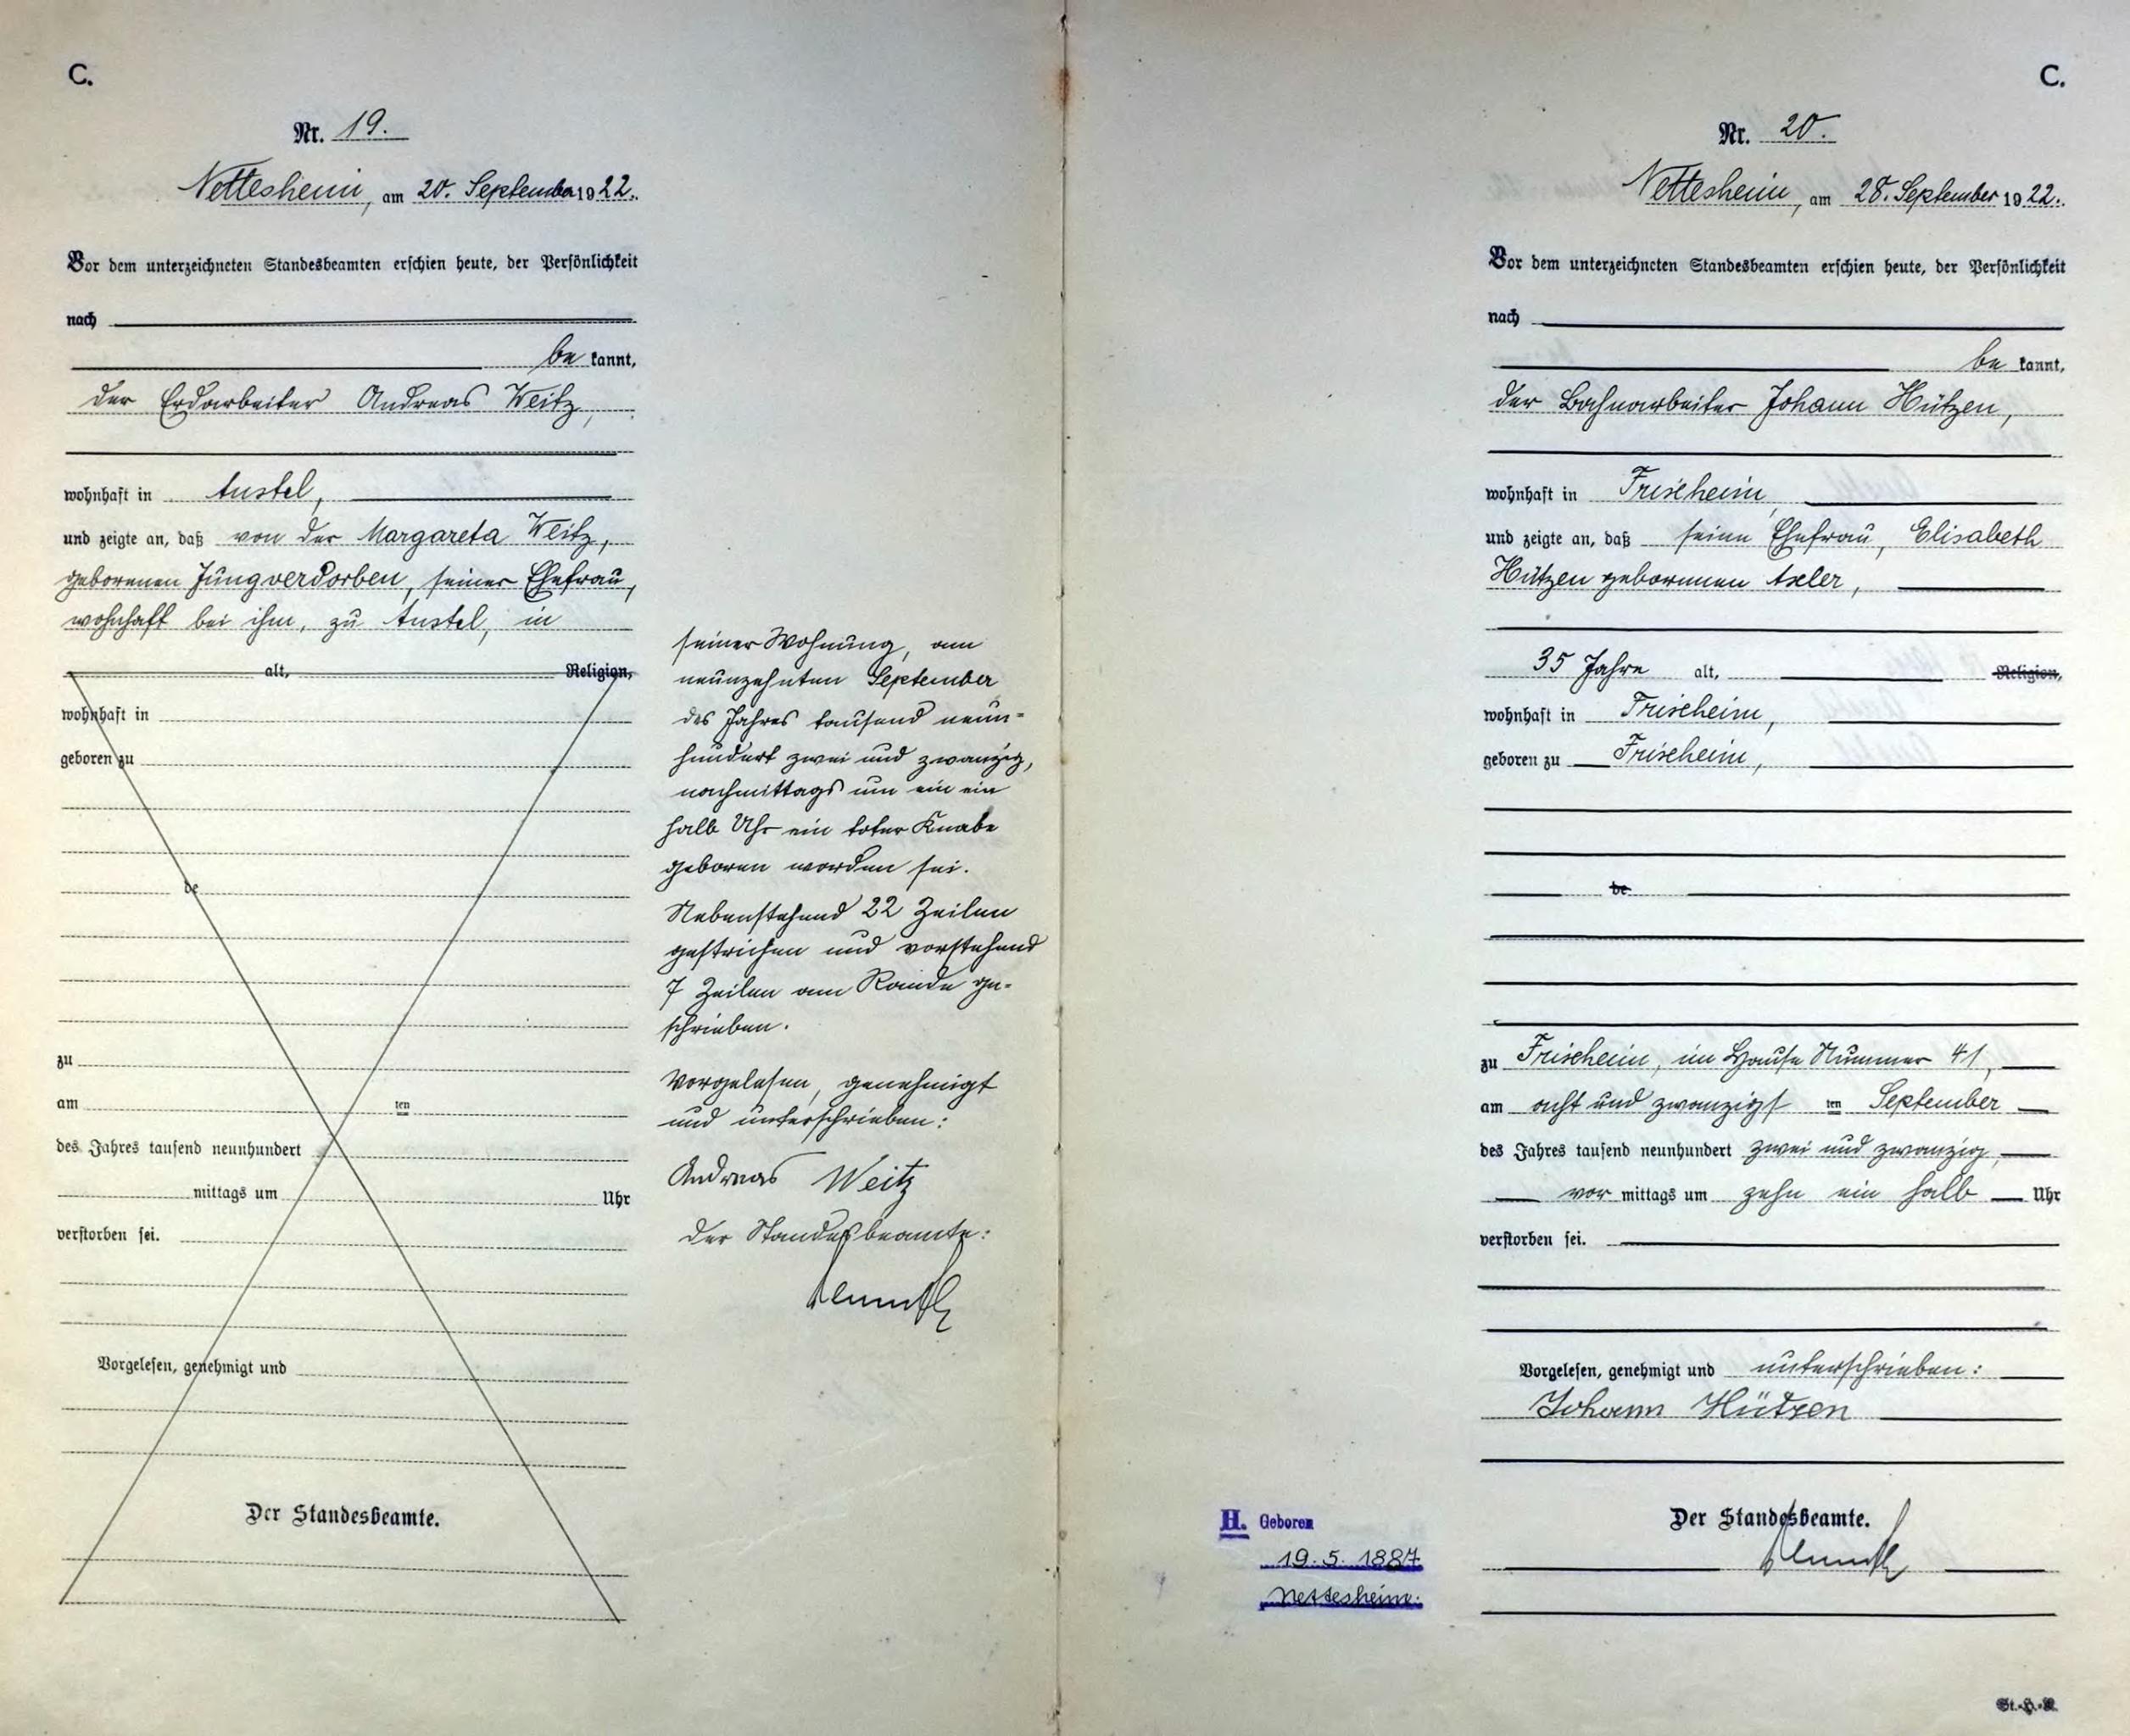 C.
Nr. 19.
Nettesheim, am 20. September 1922.
Vor dem unterzeichneten Standesbeamten erschien heute, der Persönlichkeit
nach
be kannt,
der Erdarbeiter Andreas Weitz,
wohnhaft in Anstel,
und zeigte an, daß von der Margareta Weitz,
geborenen Jungverdorben, seiner Ehefrau,
wohnhaft bei ihm, zu Anstel, in
alt, Religion,
wohnhaft in
geboren zu
de
zu
am ten
des Jahres tausend neunhundert
mittags um Uhr
verstorben sei.
Vorgelesen, genehmigt und
Der Standesbeamte.
seiner Wohnung, am
neunzehnten September
des Jahres tausend neun-
hundert zwei und zwanzig,
nachmittags um ein ein
halb Uhr ein toter Knabe
geboren worden sei.
Nebenstehend 22 Zeilen
gestrichen und vorstehend
7 Zeilen am Rande ge-
schrieben.
Vorgelesen, genehmigt
und unterschrieben:
Andreas Weitz
Der Standesbeamte:
C.
Nr. 20.
Nettesheim, am 28. September 1922.
Vor dem unterzeichneten Standesbeamten erschien heute, der Persönlichkeit
nach
be kannt,
der Bahnarbeiter Johann Hützen,
wohnhaft in Frixheim
und zeigte an, daß seine Ehefrau, Elisabeth
Hützen geborenen Axler,
35 Jahre alt, Religion,
wohnhaft in Frixheim,
geboren zu Frixheim,
de
zu Frixheim, im Hause Nummer 41,
am acht und zwanzigst ten September
des Jahres tausend neunhundert zwei und zwanzig,
vor mittags um zehn ein halb Uhr
verstorben sei.
Vorgelesen, genehmigt und unterschrieben:
Johann Hützen
Der Standesbeamte.
H. Geboren
19.5.1887
Nettesheim.